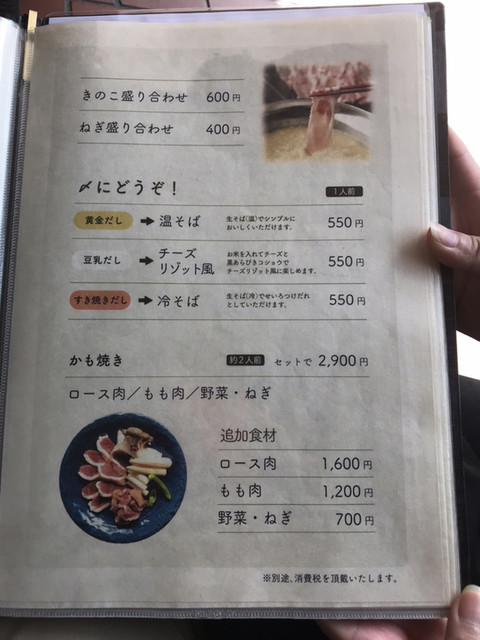 きのこ盛り合わせ 600円
ねぎ盛り合わせ 400円
〆にどうぞ！ 1人前
黄金だし ➡ 温そば 生そば(温)でシンプルに
おいしくいただけます。 550円
豆乳だし ➡ チーズ
リゾット風 お米を入れてチーズと
黒あらびきコショウで
チーズリゾット風に楽しめます。 550円
すき焼きだし ➡ 冷そば 生そば(冷)でせいろつけだれ
としていただけます。 550円
かも焼き 約2人前 セットで 2,900円
ロース肉／もも肉／野菜・ねぎ
追加食材
ロース肉 1,600円
もも肉 1,200円
野菜・ねぎ 700円
※別途、消費税を頂戴いたします。